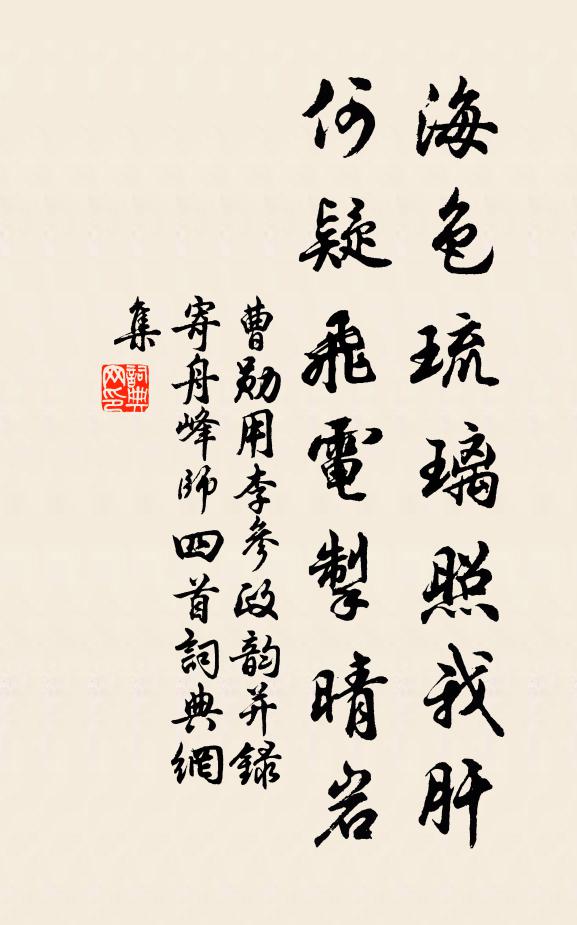 海色琉璃照我肝
何疑飛電掣晴岩
曹勛用李參政韵并録
寄舟峰師四首詞典網
集
詞典网印